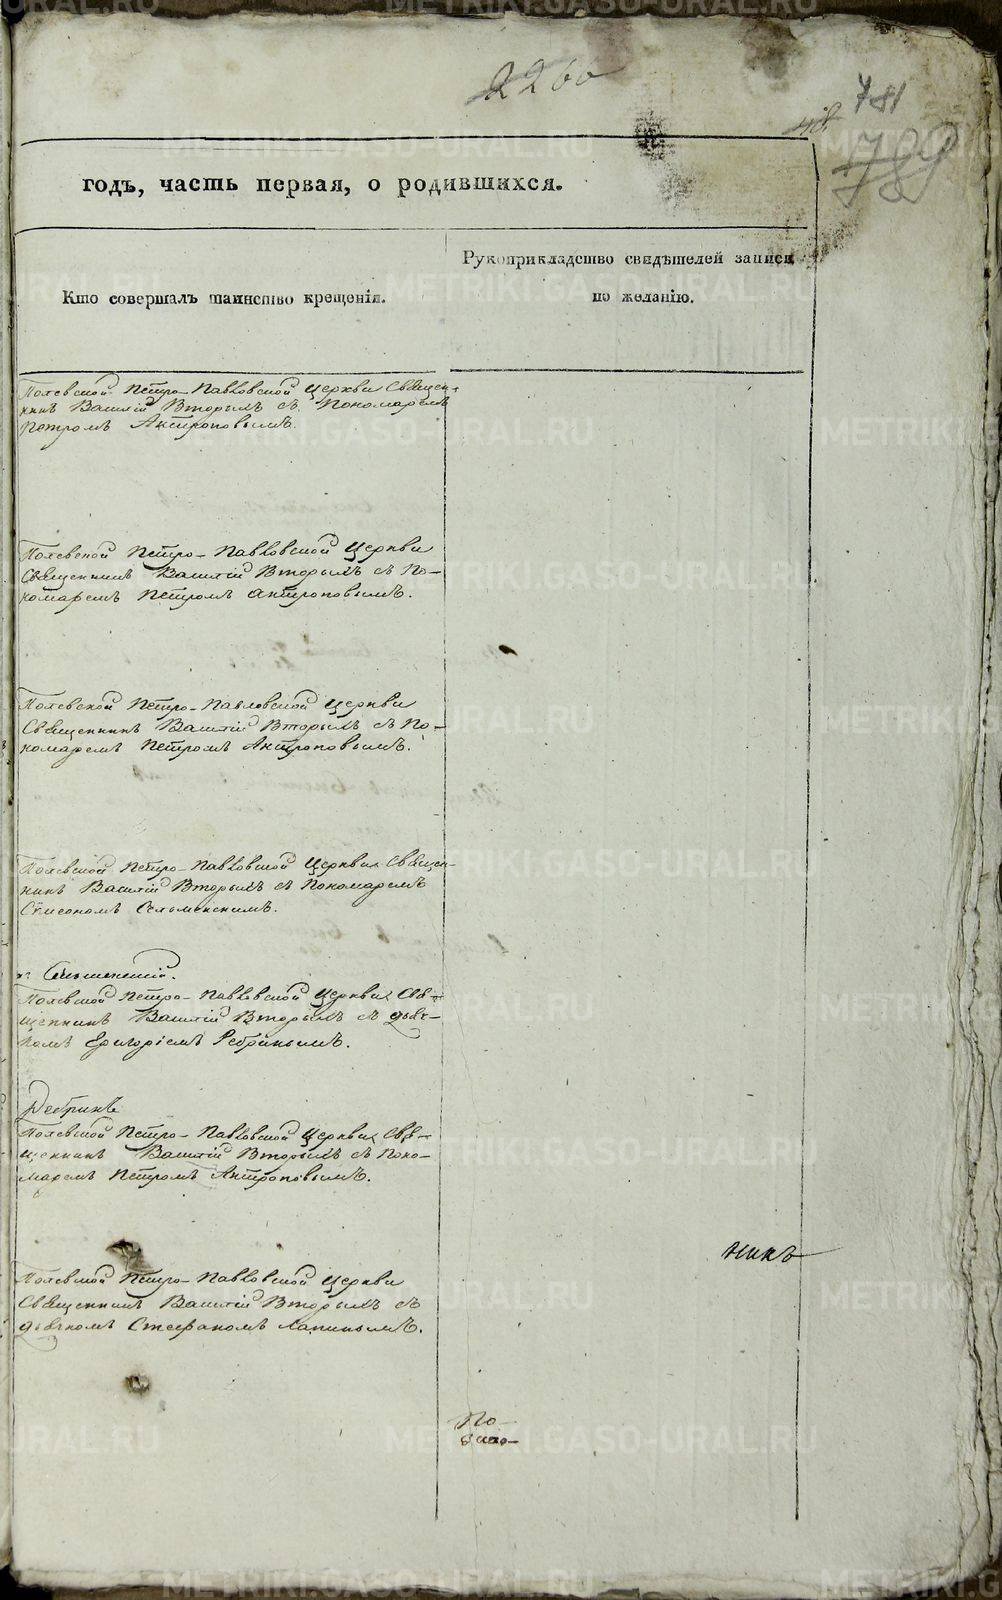 2266
781
789
годъ, часть первая, о родившихся.
Кто совершалъ таинство крещенія.
Рукоприкладство свидѣтелей записи
по желанію.
Полевской Петро-Павловской Церкви Священ-
никъ Василій Вторыхъ съ Пономаремъ
Петромъ Антроповымъ.
Полевской Петро-Павловской Церкви
Священникъ Василій Вторыхъ съ По-
номаремъ Петромъ Антроповымъ.
Полевской Петро-Павловской Церкви
Священникъ Василій Вторыхъ съ По-
номаремъ Петромъ Антроповымъ.
Полевской Петро-Павловской Церкви Священ-
никъ Василій Вторыхъ съ Пономаремъ
Сельменскимъ.
Полевской Петро-Павловской Церкви Свя-
щенникъ Василій Вторыхъ съ дьяч-
комъ Григоріемъ Ребринымъ.
Ребринъ
Полевской Петро-Павловской Церкви Свя-
щенникъ Василій Вторыхъ съ Поно-
маремъ Петромъ Антроповымъ.
никъ
Полевской Петро-Павловской Церкви
Священникъ Василій Вторыхъ съ
дьячкомъ Стефаномъ Лапинымъ.
По-
METRIKI.GASO-URAL.RU